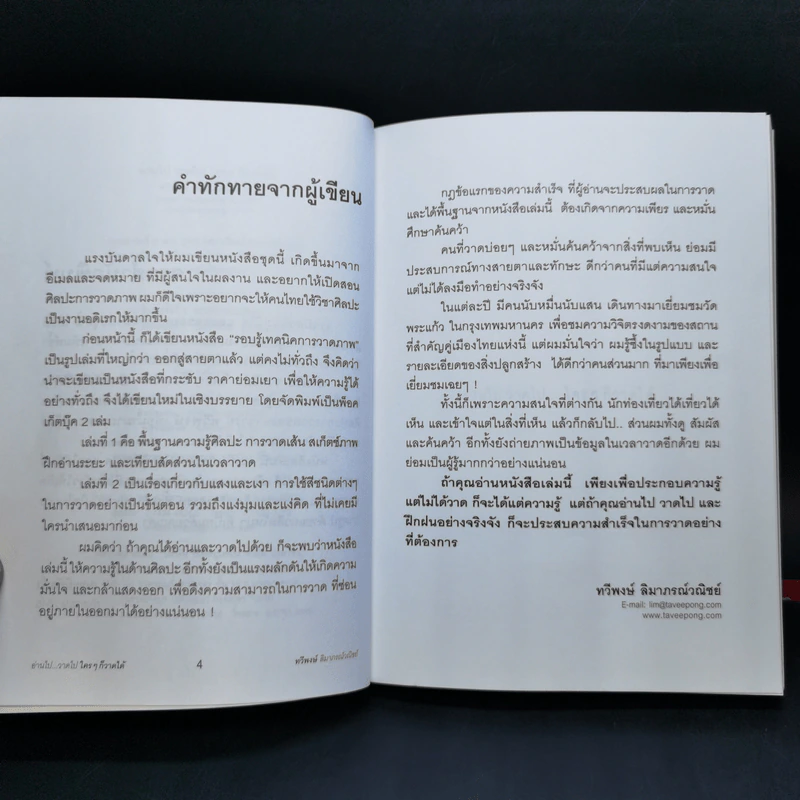 คำทักทายจากผู้เขียน
แรงบันดาลใจให้ผมเขียนหนังสือชุดนี้ เกิดขึ้นมาจาก
อีเมลและจดหมาย ที่มีผู้สนใจในผลงาน และอยากให้เปิดสอน
ศิลปะการวาดภาพ ผมก็ดีใจเพราะอยากจะให้คนไทยใช้วิชาศิลปะ
เป็นงานอดิเรกให้มากขึ้น
ก่อนหน้านี้ ก็ได้เขียนหนังสือ "รอบรู้เทคนิคการวาดภาพ"
เป็นรูปเล่มที่ใหญ่กว่า ออกสู่สายตาแล้ว แต่คงไม่ทั่วถึง จึงคิดว่า
น่าจะเขียนเป็นหนังสือที่กระชับ ราคาย่อมเยา เพื่อให้ความรู้ได้
อย่างทั่วถึง จึงได้เขียนใหม่ในเชิงบรรยาย โดยจัดพิมพ์เป็นพ็อค
เก็ตบุ๊ค 2 เล่ม
เล่มที่ 1 คือ พื้นฐานความรู้ศิลปะ การวาดเส้น สเก็ตช์ภาพ
ฝึกอ่านระยะ และเทียบสัดส่วนในเวลาวาด
เล่มที่ 2 เป็นเรื่องเกี่ยวกับแสงและเงา การใช้สีชนิดต่างๆ
ในการวาดอย่างเป็นขั้นตอน รวมถึงแง่มุมและแง่คิด ที่ไม่เคยมี
ใครนำเสนอมาก่อน
ผมคิดว่า ถ้าคุณได้อ่านและวาดไปด้วย ก็จะพบว่าหนังสือ
เล่มนี้ ให้ความรู้ในด้านศิลปะ อีกทั้งยังเป็นแรงผลักดันให้เกิดความ
มั่นใจ และกล้าแสดงออก เพื่อดึงความสามารถในการวาด ที่ซ่อน
อยู่ภายในออกมาได้อย่างแน่นอน !
อ่านไป...วาดไป ใครๆ ก็วาดได้
4
ทวีพงษ์ ลิมาภรณ์วณิชย์
กฎข้อแรกของความสำเร็จ ที่ผู้อ่านจะประสบผลในการวาด
และได้พื้นฐานจากหนังสือเล่มนี้ ต้องเกิดจากความเพียร และหมั่น
ศึกษาค้นคว้า
คนที่วาดบ่อยๆ และหมั่นค้นคว้าจากสิ่งที่พบเห็น ย่อมมี
ประสบการณ์ทางสายตาและทักษะ ดีกว่าคนที่มีแต่ความสนใจ
แต่ไม่ได้ลงมือทำอย่างจริงจัง
ในแต่ละปี มีคนนับหมื่นนับแสน เดินทางมาเยี่ยมชมวัด
พระแก้ว ในกรุงเทพมหานคร เพื่อชมความวิจิตรงดงามของสถาน
ที่สำคัญคู่เมืองไทยแห่งนี้ แต่ผมมั่นใจว่า ผมรู้ซึ้งในรูปแบบ และ
รายละเอียดของสิ่งปลูกสร้าง ได้ดีกว่าคนส่วนมาก ที่มาเพียงเพื่อ
เยี่ยมชมเฉยๆ !
ทั้งนี้ก็เพราะความสนใจที่ต่างกัน นักท่องเที่ยวได้เที่ยวได้
เห็น และเข้าใจแต่ในสิ่งที่เห็น แล้วก็กลับไป.. ส่วนผมทั้งดู สัมผัส
และค้นคว้า อีกทั้งยังถ่ายภาพเป็นข้อมูลในเวลาวาดอีกด้วย ผม
ย่อมเป็นผู้รู้มากกว่าอย่างแน่นอน
ถ้าคุณอ่านหนังสือเล่มนี้ เพียงเพื่อประกอบความรู้
แต่ไม่ได้วาด ก็จะได้แต่ความรู้ แต่ถ้าคุณอ่านไป วาดไป และ
ฝึกฝนอย่างจริงจัง ก็จะประสบความสำเร็จในการวาดอย่าง
ที่ต้องการ
ทวีพงษ์ ลิมาภรณ์วณิชย์
E-mail: lim@taveepong.com
www.taveepong.com